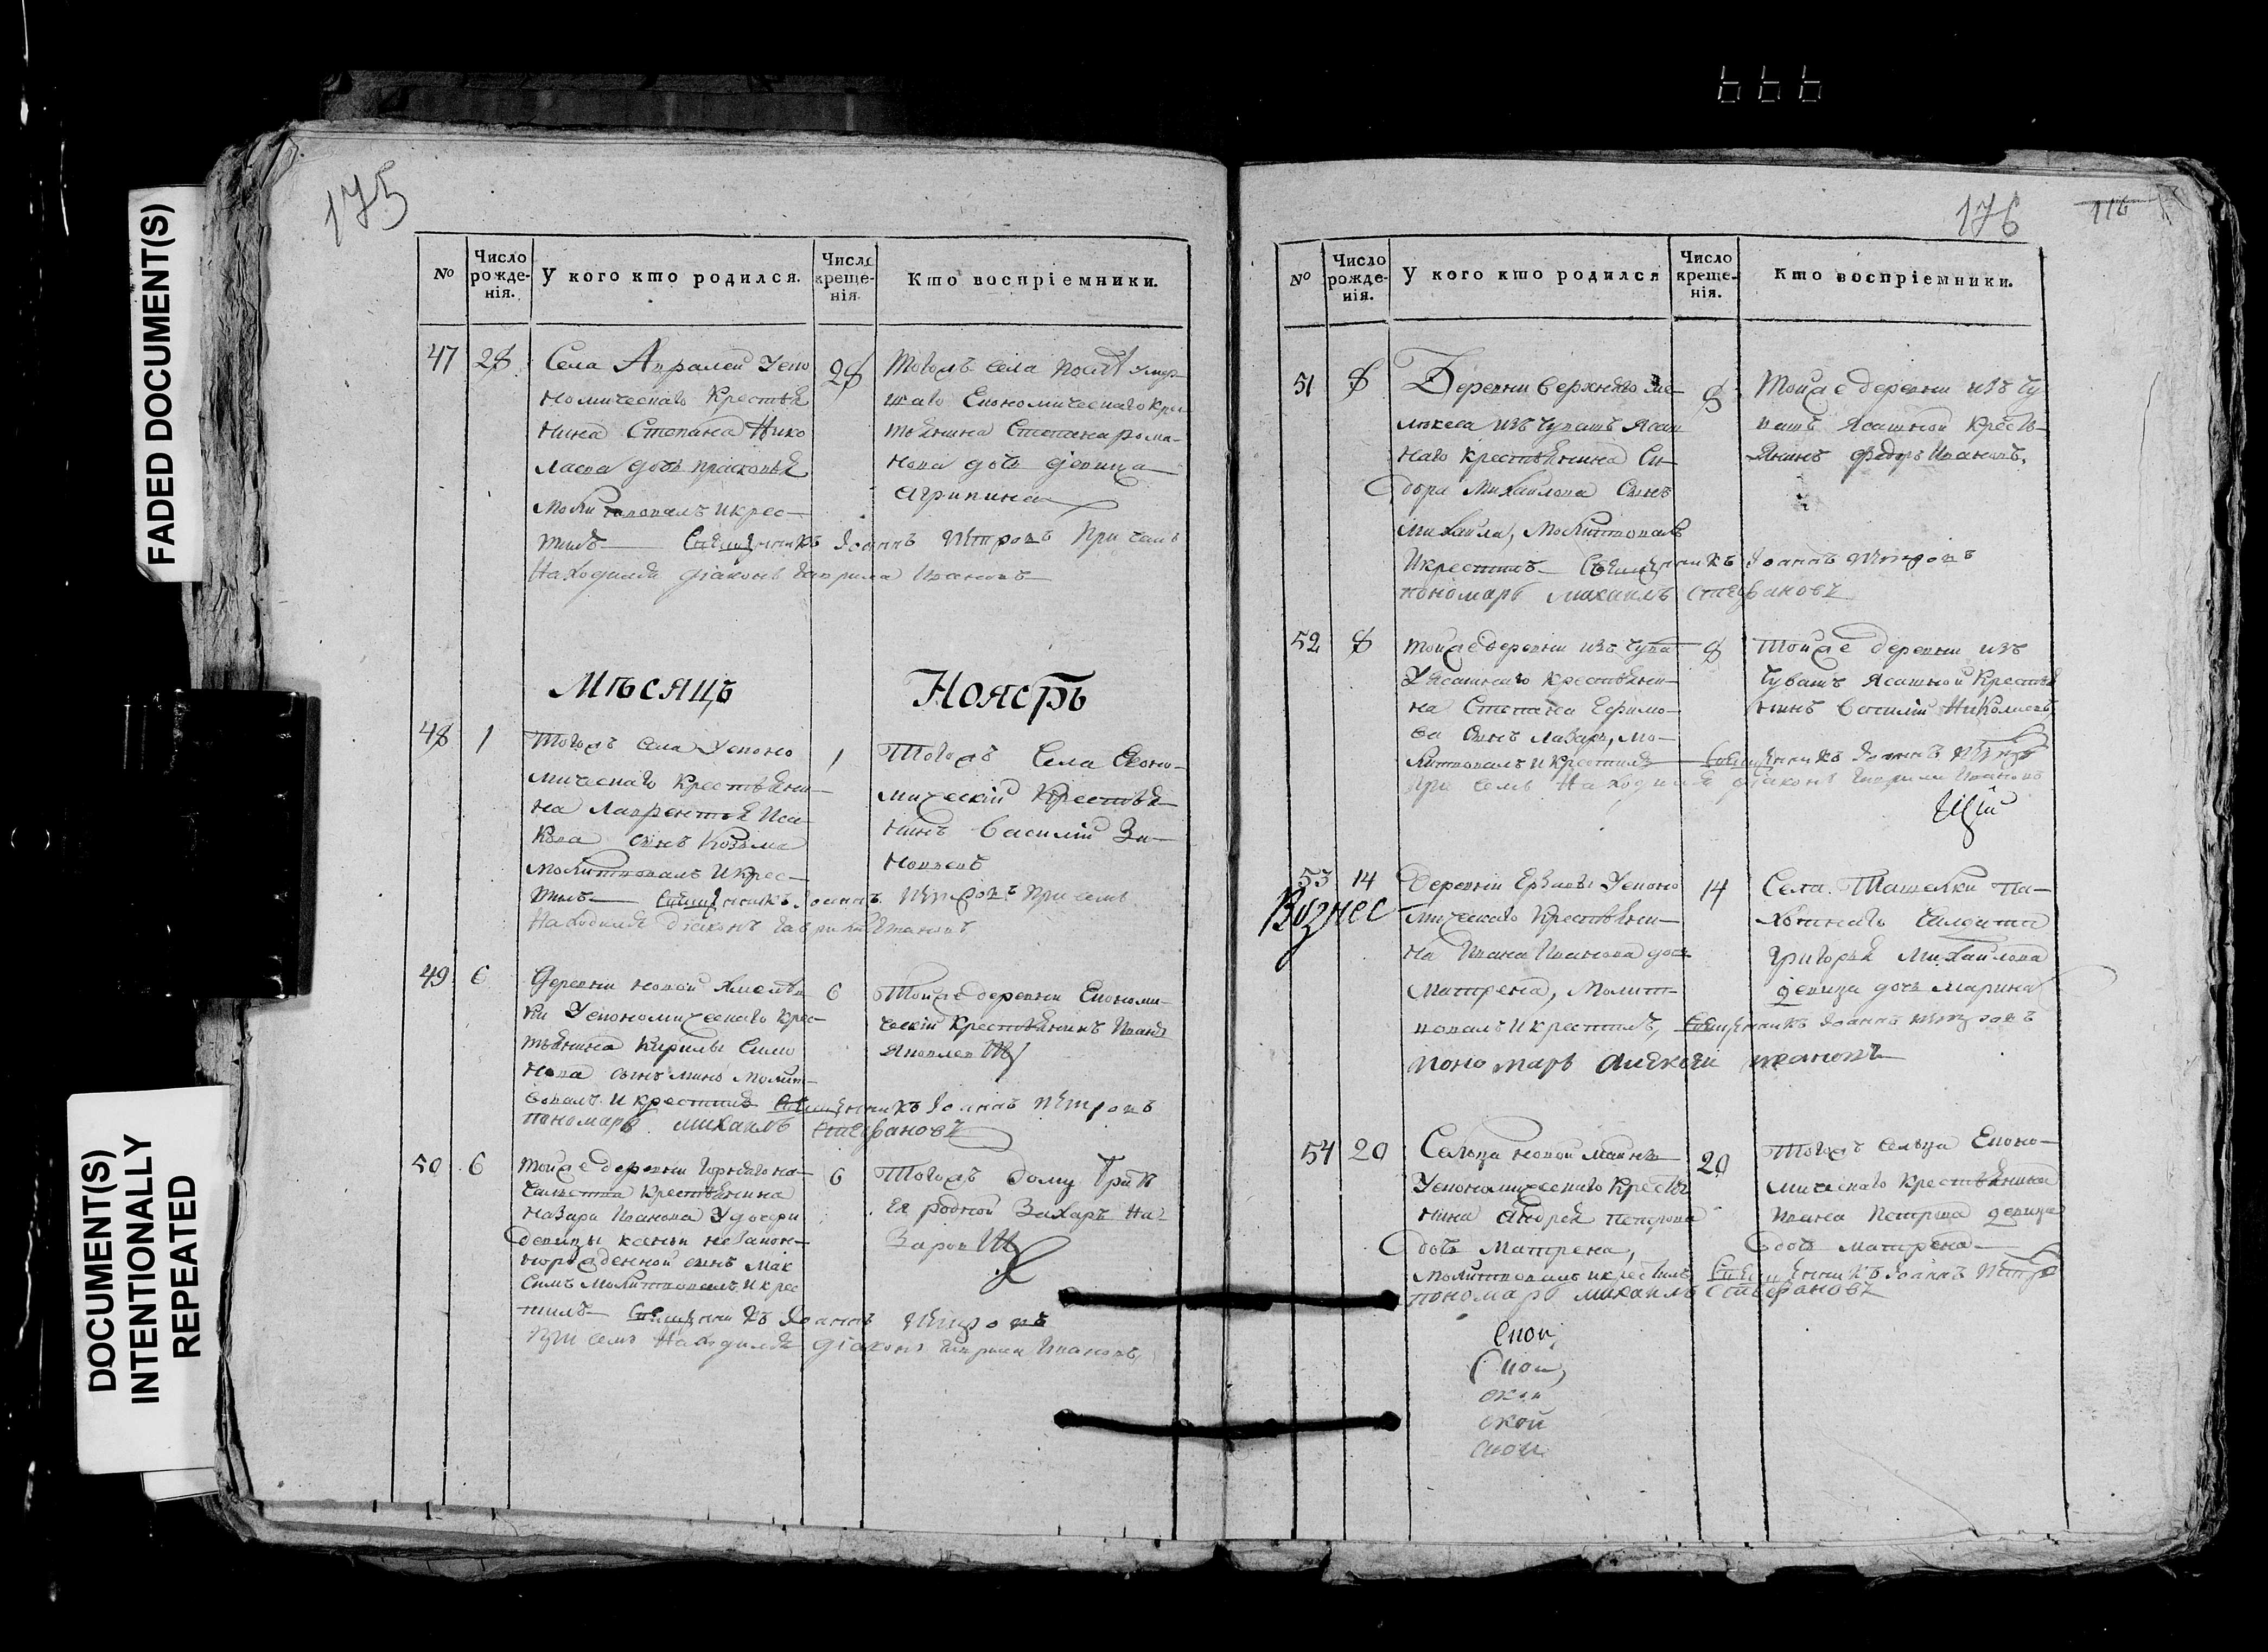 FADED DOCUMENT(S)
DOCUMENT(S)
INTENTIONALLY
REPEATED
175
№
Число рожденія.
У кого кто родился.
Число крещенія
Кто воспріемники.
47 28
Села Апралей Уеко
номическаго Крестья
нина Степана Нико
лаева дочь прасковья
Молитвовалъ и крес-
тилъ Священникъ Іоаннъ Петровъ При чемъ
Находился діаконъ Гаврила Ивановъ
28
Тогожъ села
шаго Економическаго крес
тьянина Степана рома-
нова дочь девица
Агрипина
Мѣсяцъ Ноябрь
48 1
Тогожъ села Уеконо
мическаго Крестьяни-
на Лаврентья Иса-
кова сынъ Козьма
Молитвовалъ И крес-
тилъ Священникъ Іоаннъ Петровъ При семъ
Находился діаконъ Гаврила Ивановъ
1
Тогожъ Села Еконо-
мическій Крестья-
нинъ Василій Зи-
новьевъ
49 6
Деревни новой Хмелев
ки Уекономическаго крес-
тьянина Кирилы Симо
нова сынъ мина молит-
вовалъ И крестилъ Священникъ Іоаннъ Петровъ
пономарь михаилъ стефановъ
6
Тойже деревни Економи-
ческій Крестьянинъ Иванъ
Яковлевъ
50 6
Тойже деревни
крестьянина
Назара Иванова У дочери
девицы ксеньи незакон-
норожденной сынъ Мак
симъ молитвовалъ И крес
тилъ Священникъ Іоаннъ Петровъ
При семъ Находился діаконъ Гаврила Ивановъ
6
Тогожъ дому братъ
Ея родной Захаръ На-
заровъ
176
116
№
Число рожденія.
У кого кто родился
Число крещенія.
Кто воспріемники.
51 8
Деревни верхняго Ме-
лекеса изъ чувашъ Ясаш
наго крестьянина Си-
дора Михаилова Сынъ
михаила, Молитвовалъ
И крестилъ Священникъ Іоаннъ Петровъ
пономарь михаилъ стефановъ
8
Тойже деревни изъ чу
вашъ Ясашной кресть-
янинъ федоръ Ивановъ.
52 8
тойже деревни изъ чува
У Ясашнаго крестьяни-
на Степана Ефимо-
ва сынъ лазарь, мо-
литвовалъ и крестилъ Священникъ Іоаннъ Петровъ
При семъ Находился діаконъ Гаврила Ивановъ
8
Тойже деревни изъ
чувашъ Ясашной Крестья
нинъ Василій Николаевъ
53 14
Вознес
Деревни Ерзовы Уеконо
мическаго Крестьяни-
на Ивана Иванова дочь
матрена, Молит-
вовалъ и крестилъ, Священникъ Іоаннъ Петровъ
пономарь алексеи ивановъ
14
Села Ташелки Па-
хотнаго Салдата
Григорья Михайлова
девица дочь Марина
54 20
Сельца новой майны
Уекономическаго Кресть
нина Андрея петрова
дочь Матрена,
молитвовалъ и крестилъ Священникъ Іоаннъ Петровъ
пономарь михаилъ Стефановъ
20
Тогожъ сельца Еконо-
мическаго крестьянина
Ивана Петрова девица
дочь матрена